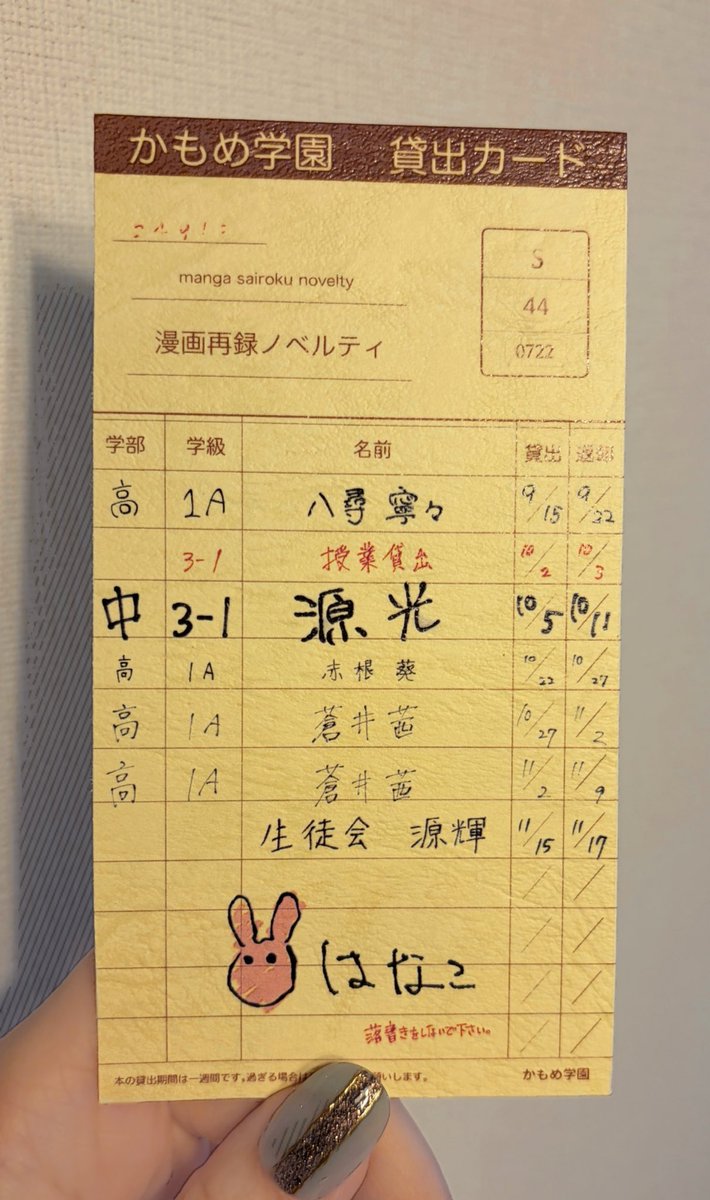 かもめ学園 貸出カード
manga sairoku novelty
漫画再録ノベルティ
S
44
0722
学部 学級 名前 貸出 返却
高 1A 八尋寧々 9/15 9/22
3-1 授業貸出 10/2 10/3
中 3-1 源光 10/5 10/11
高 1A 赤根葵 10/22 10/27
高 1A 蒼井茜 10/27 11/2
高 1A 蒼井茜 11/2 11/9
生徒会 源輝 11/15 11/17
はなこ
落書きをしないで下さい。
本の貸出期間は一週間です。過ぎる場合は 願いします。 かもめ学園